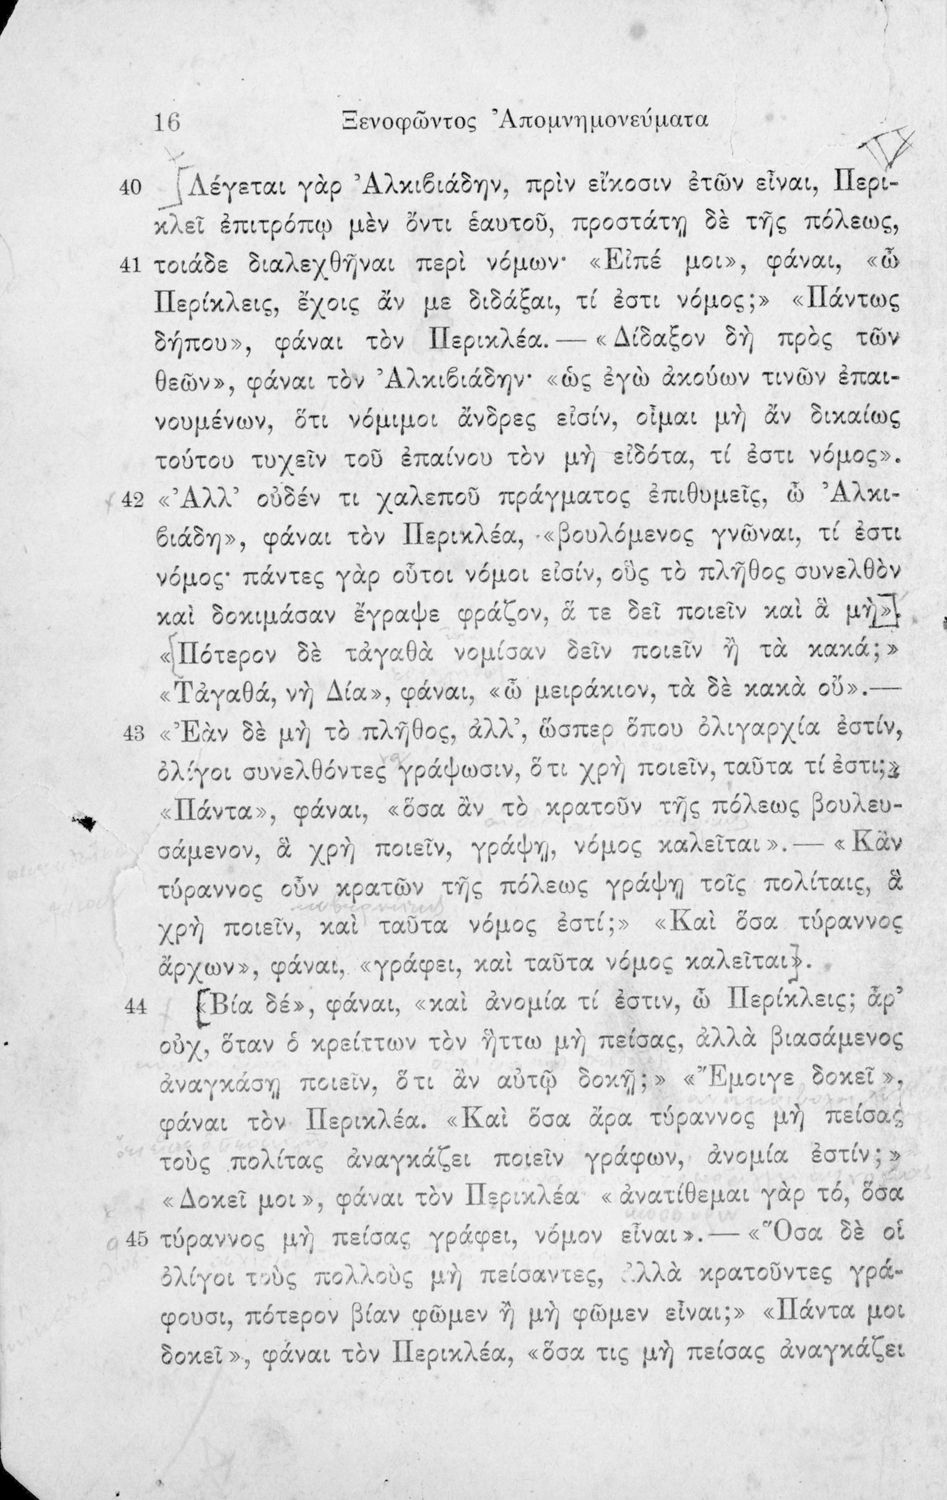 16 Ξενοφῶντος Ἀπομνημονεύματα
40 [Λέγεται γὰρ Ἀλκιϐιάδην, πρὶν εἴκοσιν ἐτῶν εἶναι, Περι-
κλεῖ ἐπιτρόπῳ μὲν ὄντι ἑαυτοῦ, προστάτῃ δὲ τῆς πόλεως,
41 τοιάδε διαλεχθῆναι περὶ νόμων· «Εἰπέ μοι», φάναι, «ὦ
Περίκλεις, ἔχοις ἄν με διδάξαι, τί ἐστι νόμος;» «Πάντως
δήπου», φάναι τὸν Περικλέα. — «Δίδαξον δὴ πρὸς τῶν
θεῶν», φάναι τὸν Ἀλκιϐιάδην· «ὡς ἐγὼ ἀκούων τινῶν ἐπαι-
νουμένων, ὅτι νόμιμοι ἄνδρες εἰσίν, οἶμαι μὴ ἄν δικαίως
τούτου τυχεῖν τοῦ ἐπαίνου τὸν μὴ εἰδότα, τί ἐστι νόμος».
42 «Ἀλλ’ οὐδέν τι χαλεποῦ πράγματος ἐπιθυμεῖς, ὦ Ἀλκι-
ϐιάδη», φάναι τὸν Περικλέα, «βουλόμενος γνῶναι, τί ἐστι
νόμος· πάντες γὰρ οὗτοι νόμοι εἰσίν, οὓς τὸ πλῆθος συνελθὸν
καὶ δοκιμάσαν ἔγραψε φράζον, ἅ τε δεῖ ποιεῖν καὶ ἃ μὴ»]
«[Πότερον δὲ τἀγαθὰ νομίσαν δεῖν ποιεῖν ἢ τὰ κακά;»
«Τἀγαθά, νὴ Δία», φάναι, «ὦ μειράκιον, τὰ δὲ κακὰ οὔ».—
43 «Ἐὰν δὲ μὴ τὸ πλῆθος, ἀλλ’, ὥσπερ ὅπου ὀλιγαρχία ἐστίν,
ὀλίγοι συνελθόντες γράψωσιν, ὅτι χρὴ ποιεῖν, ταῦτα τί ἐστι;»
«Πάντα», φάναι, «ὅσα ἂν τὸ κρατοῦν τῆς πόλεως βουλευ-
σάμενον, ἃ χρὴ ποιεῖν, γράψῃ, νόμος καλεῖται».— «Κἂν
τύραννος οὖν κρατῶν τῆς πόλεως γράψῃ τοῖς πολίταις, ἃ
χρὴ ποιεῖν, καὶ ταῦτα νόμος ἐστί;» «Καὶ ὅσα τύραννος
ἄρχων», φάναι, «γράφει, καὶ ταῦτα νόμος καλεῖται]».
44 [«Βία δέ», φάναι, «καὶ ἀνομία τί ἐστιν, ὦ Περίκλεις; ἆρ’
οὐχ, ὅταν ὁ κρείττων τὸν ἥττω μὴ πείσας, ἀλλὰ βιασάμενος
ἀναγκάσῃ ποιεῖν, ὅτι ἂν αὐτῷ δοκῇ;» «Ἔμοιγε δοκεῖ»,
φάναι τὸν Περικλέα. «Καὶ ὅσα ἄρα τύραννος μὴ πείσας
τοὺς πολίτας ἀναγκάζει ποιεῖν γράφων, ἀνομία ἐστίν;»
«Δοκεῖ μοι», φάναι τὸν Περικλέα «ἀνατίθεμαι γὰρ τό, ὅσα
45 τύραννος μὴ πείσας γράφει, νόμον εἶναι».— «Ὅσα δὲ οἱ
ὀλίγοι τοὺς πολλοὺς μὴ πείσαντες, ἀλλὰ κρατοῦντες γρά-
φουσι, πότερον βίαν φῶμεν ἢ μὴ φῶμεν εἶναι;» «Πάντα μοι
δοκεῖ», φάναι τὸν Περικλέα, «ὅσα τις μὴ πείσας ἀναγκάζει